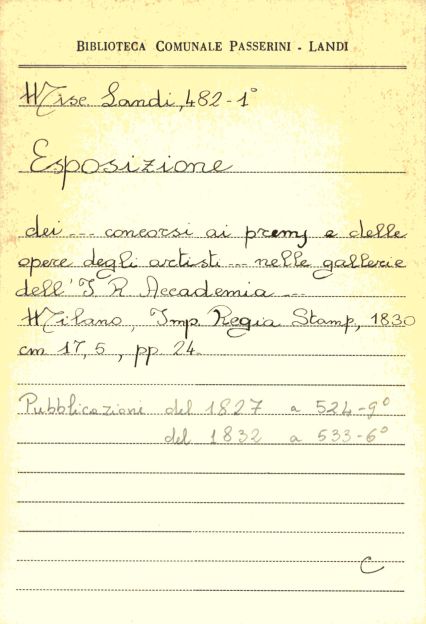 BIBLIOTECA COMUNALE PASSERINI - LANDI
Misc. Landi, 482-1°
Esposizione
dei --- concorsi ai premj e delle
opere degli artisti --- nelle gallerie
dell' I R Accademia ---
Milano, Imp. Regia Stamp, 1830
cm 17,5, pp. 24.
Pubblicazioni del 1827 a 524-9°
del 1832 a 533-6°
C